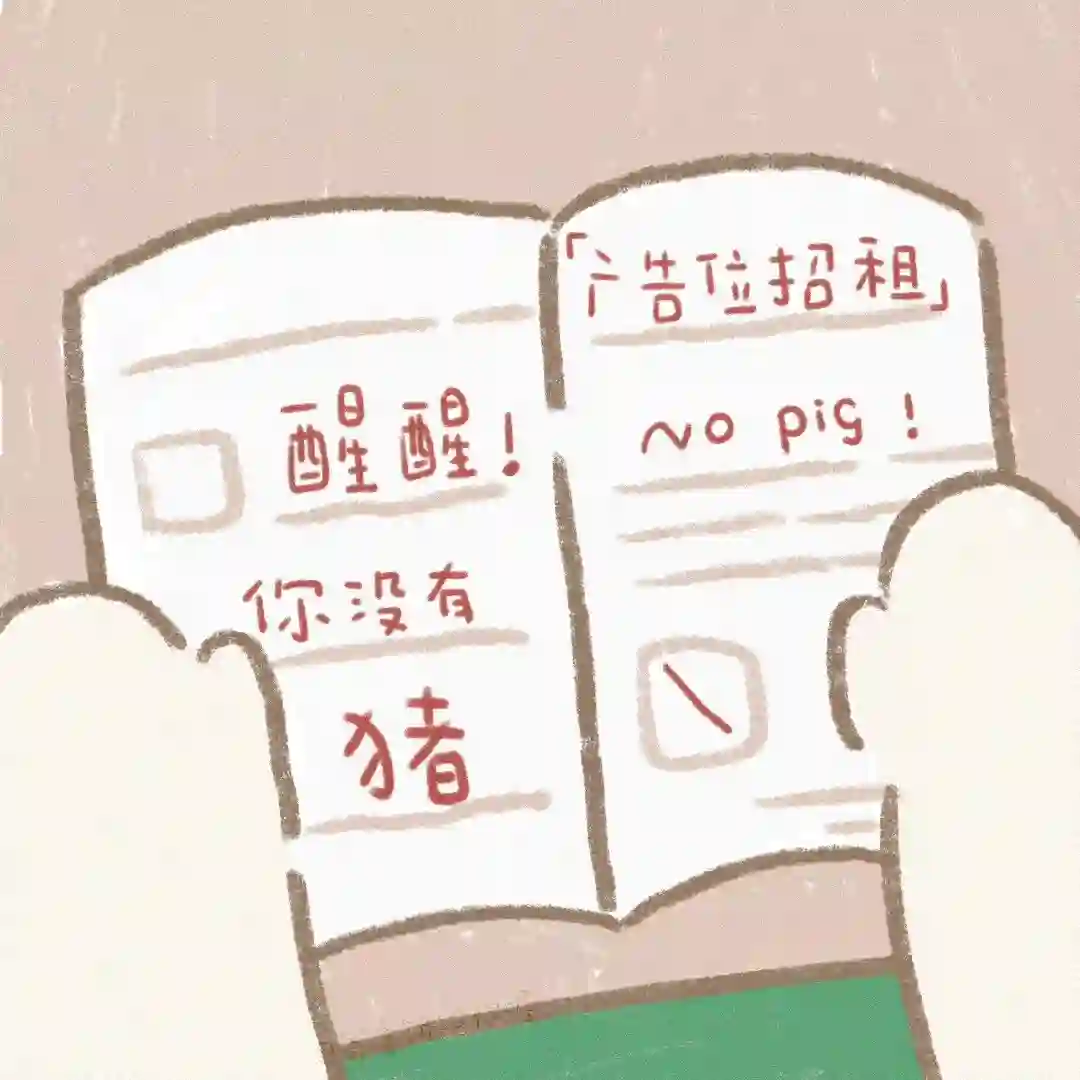 醒醒!
你没有
猪
「广告位招租」
No pig !